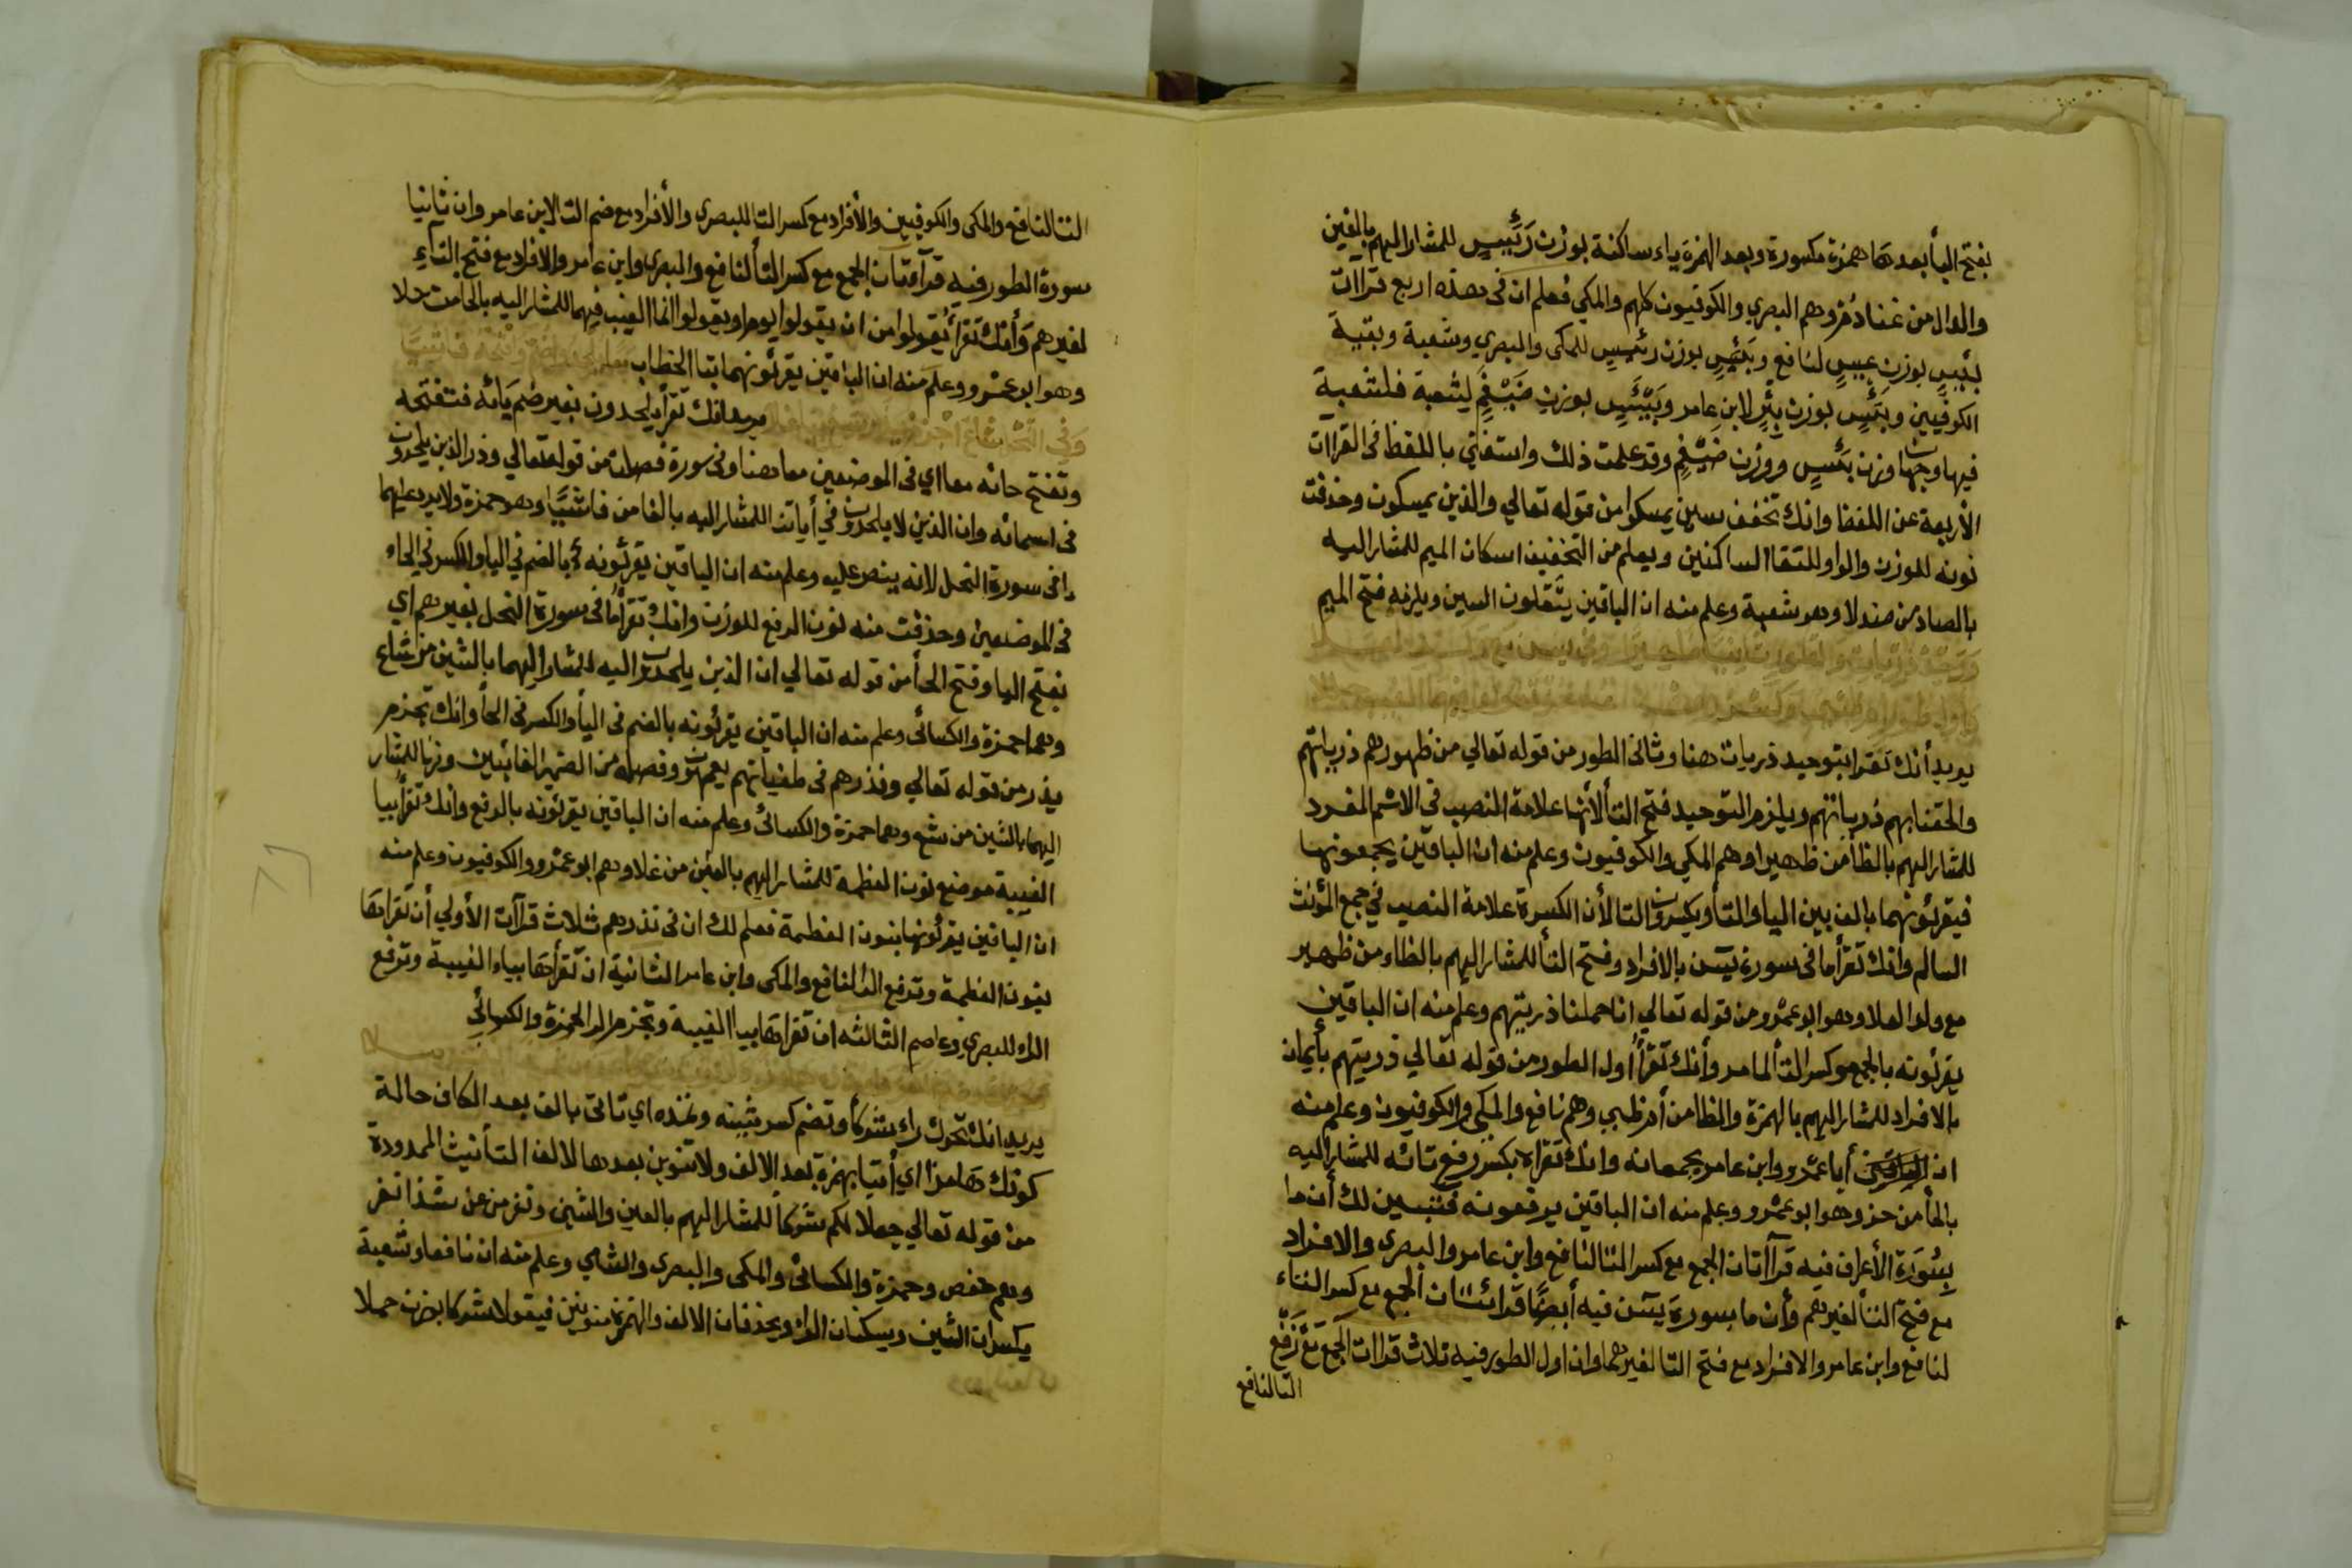 بفتح اليأ بعدها همزة مكسورة وبعد الهمزة ياء ساكنة بوزن رَئِيسٍ للمشار اليهم بالغين
والدال من غنا دُفر وهم البصري والكوفيون كلهم والمكي فعلم ان في هذه اربع قراات
بئيسٍ بوزن عيسٍ لنافع وبَئِيسٍ بوزن رئيسٍ للمكى والبصري وشعبة وبقية
الكوفيين وبئسٍ بوزن بئرٍ لابن عامر وبَيْئَسٍ بوزن ضَيْغَمٍ لشعبة فلشعبة
فيها وجهان وزن بئيسٍ ووزن ضيغمٍ وقد علمت ذلك واستغني باللفظ فى القراآت
الأربعة عن اللفظ وانك تخفف سين يمسكوا من قوله تعالي والذين يمسكون وحذفت
نونه للوزن والواو للتقا الساكنين ويعلم من التخفيف اسكان الميم للمشار اليه
بالصاد من صندلا وهو شعبة وعلم منه ان الباقين يثقلون السين ويلزمه فتح الميم
يريد أنك تقرا بتوحيد ذريات هنا وثانى الطور من قوله تعالي من ظهورهم ذرياتهم
والحقنا بهم ذرياتهم ويلزم التوحيد فتح التأ لأنها علامة النصب في الاسم المفرد
للمشار اليهم بالظأ من ظهيرا وهم المكي والكوفيون وعلم منه ان الباقين يجمعونها
فيقرئونهما بالف بين اليا والتأ ويكسرون التا لأن الكسرة علامة النصب في جمع المؤنث
السالم وانك تقرأ ما فى سورة يسن بالافراد وفتح التأ للمشار اليهم بالظاء من ظهير
مع ولو العلا وهو ابو عمرو من قوله تعالي انا حملنا ذريتهم وعلم منه ان الباقين
يقرئونه بالجمع وكسر التأ لما مر وأنك تقرأ اول الطور من قوله تعالي ذريتهم بأيمان
بالافراد للمشار اليهم بالهمزة والظا من أم ظبي وهم نافع والمكي والكوفيون وعلم منه
ان أبا عمرو وابن عامر يجمعانه وانك تقراه بكسر رفع تائه للمشار اليه
بالحأ من حز وهو ابو عمرو وعلم منه ان الباقين يرفعونه فتبين لك أن ما
بِسُورَةِ الأعراف فيه قراآتان الجمع مع كسر التا لنافع وابن عامر والبصرى والافراد
مع فتح التأ لغيرهم وأن ما بسورة يسن فيه أيضًا قرائتان الجمع مع كسر التاء
لنافع وابن عامر والافراد مع فتح التا لغيرهما وان اول الطور فيه ثلاث قراات الجمع مع رفع
التا لنافع
التا لنافع والمكى والكوفيين والأفراد مع كسر التا للبصرى والأفراد مع ضم التا لابن عامر وان ثانيا
سورة الطور فيه قرآءتان الجمع مع كسر التأ لنافع والبصرى وابن عامر والافراد مع فتح التاءِ
لغيرهم وأنك تقرأ يقولوا من ان يقولوا يوم او يقولوا انما الغيب فيهما للمشار اليه بالحا من حلا
وهو ابو عمرو وعلم منه ان الباقين يقرئونهما بتا الخطاب
يريد انك تقرأ يلحدون بغير ضم يائه فتفتحه
وتفتح حائه معا اي فى الموضعين معا هنا وفى سورة فصلت من قوله تعالي وذر الذين يلحدون
فى اسمائه وان الذين لا يلحدون في أياتنا للمشار اليه بالفا من فاشيا وهو حمزة ولا يرد عليهما
ما فى سورة النحل لانه ينص عليه وعلم منه ان الباقين يقرئونه بالضم في اليا والكسر في الحاء
فى الموضعين وحذفت منه نون الرفع للوزن وانك تقرأ ما فى سورة النحل بغيرهم اي
بفتح اليا وفتح الحأ من قوله تعالي ان الذين يلحدون اليه للمشار اليهما بالشين من شاع
وهما حمزة والكسائى وعلم منه ان الباقين يقرئونه بالضم فى اليأ والكسر فى الحأ وانك تجزم
يذر من قوله تعالي ونذرهم فى طغيانهم يعمهون وفصله من الضمير الغائبين وزنا للمشار
اليهما بالشين من شع وهما حمزة والكسائى وعلم منه ان الباقين يقرئونه بالرفع وانك تقرأ بيا
الغيبة موضع نون العظمة للمشار اليهم بالغين من غلا وهم ابو عمرو والكوفيون وعلم منه
ان الباقين يقرئونها بنون العظمة فعلم لك ان فى نذرهم ثلاث قراآت الأولي أن تقراها
بنون العظمة وترفع الرا لنافع والمكى وابن عامر الثانية ان تقرأها بياء الغيبة وترفع
الراء للبصرى وعاصم الثالثه ان تقراها بيا الغيبة وتجزم الرا لحمزة والكسائي
يريد انك تحرك راء شركأ وتضم كسر شينه وتمده اي تاتى بالف بعد الكاف حالة
كونك هامزا اي أتيا بهمزة بعد الالف ولا تنوين بعدها لالف التأنيث الممدودة
من قوله تعالي جعلا لكم شركأ للمشار اليهم بالعين والشين ونفر من عن شذا نفر
وهم حفص وحمزة والكسائى والمكى والبصرى والشامي وعلم منه ان نافعا وشعبة
يكسران الشين ويسكنان الراء ويحذفان الالف والهمزة منونين فيقولا شركا بوزن حملا